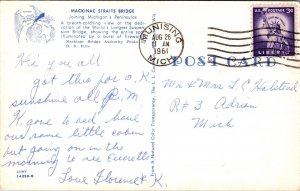 MACKINAC STRAITS BRIDGE
Joining Michigan's Peninsulas
A breath-catching view at the dedication
of the World's Longest Suspension
Bridge, showing the entire
illuminated by a burst of fireworks.
Mackinac Bridge Authority Photo
MUNISING
AUG 26
AM
1961
MICH
U.S. POSTAGE 3¢
LIBERTY
POST CARD
Hi you all
got this far O.K.
sunshine all P.M.
K. gone to bed, have
our same little cabin
but going on in the
morning to see Everette
Love Florence & K.
Mr & Mrs L C Halstead
R # 3 Adrian
Mich